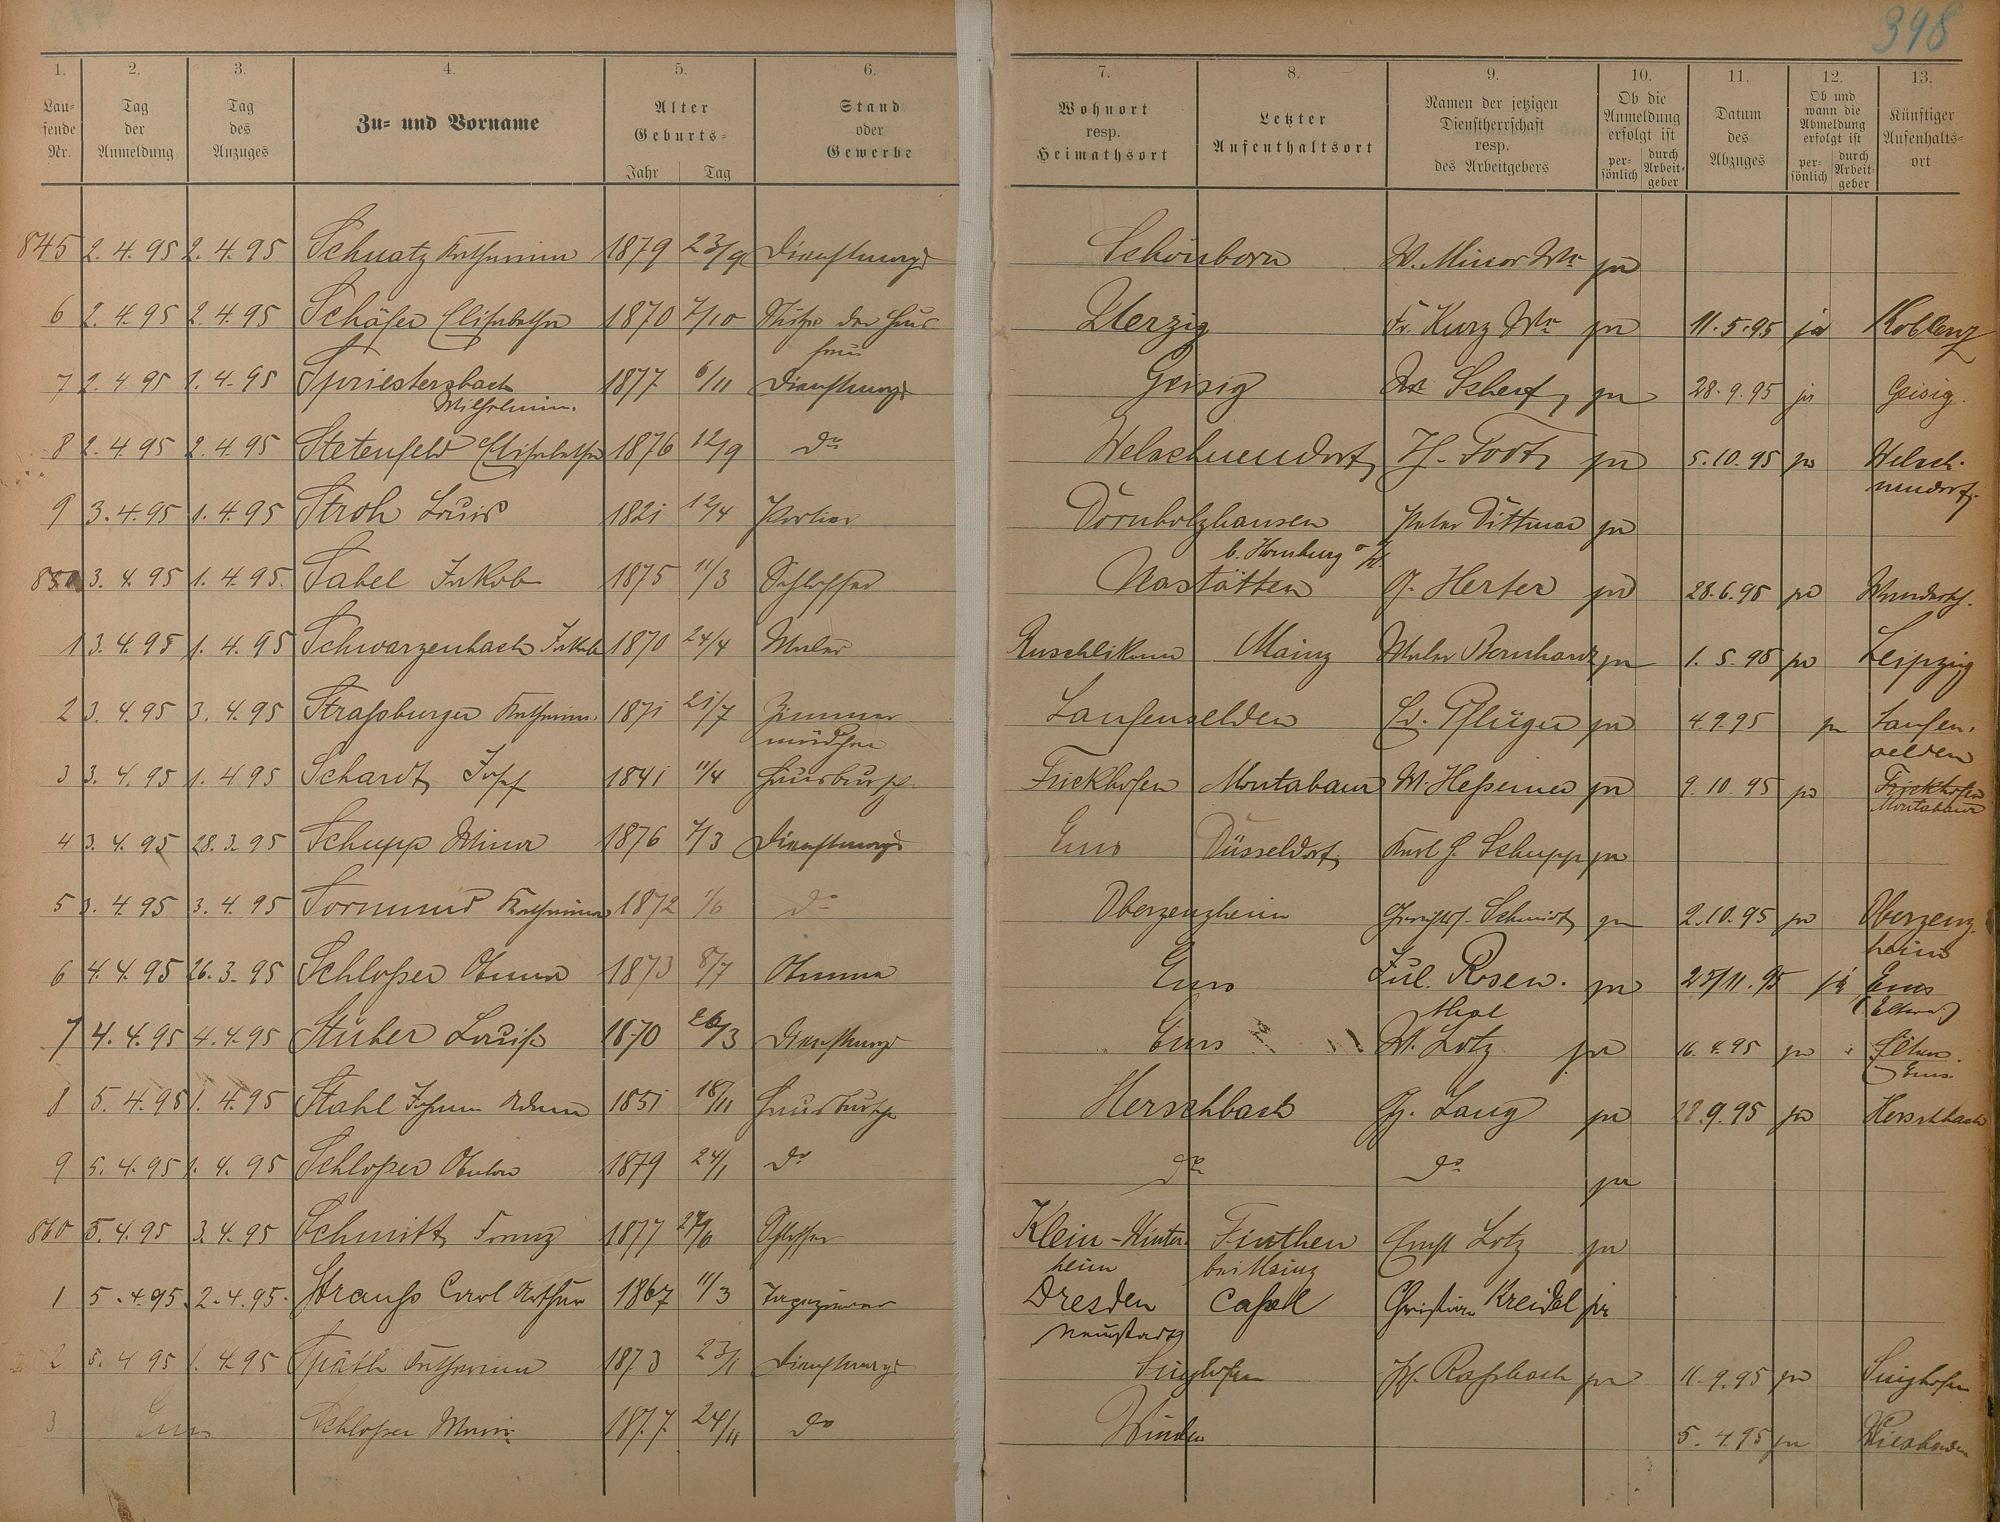 398
1. 2. 3. 4. 5. 6. 7. 8. 9. 10. 11. 12. 13.
Laufende Nr. Tag der Anmeldung Tag des Anzuges Zu- und Vorname Alter Geburts- Jahr Tag Stand oder Gewerbe Wohnort resp. Heimathsort Letzter Aufenthaltsort Namen der jetzigen Dienstherrschaft resp. des Arbeitgebers Ob die Anmeldung erfolgt ist persönlich durch Arbeitgeber Datum des Abzuges Ob und wann die Abmeldung erfolgt ist persönlich durch Arbeitgeber Künftiger Aufenthaltsort
845 2.4.95 2.4.95 Schnatz Katharina 1879 23/9 Dienstmagd Schönborn W. Minor Wr ja
6 2.4.95 2.4.95 Schäfer Elisabetha 1870 7/10 Stütze der Haus Uerzig Fr. Kurz Wr ja 11.5.95 ja Koblenz
frau
7 2.4 95 1.4.95 Spriestersbach 1877 6/11 Dienstmagd Geisig Scherf ja 28.9.95 ja Geisig.
Wilhelmine.
8 2.4.95 2.4.95 Stetenfeld Elisabetha 1876 12/9 do Welschneudorf H. Todt ja 5.10.95 ja Welsch-
neudorf.
9 3.4.95 1.4.95 Stroh Louis 1821 12/4 Portier Dornholzhausen Peter Dittmar ja
b. Homburg v/H.
850 3.4.95 1.4.95. Sabel Jakob 1875 11/3 Schlosser Nastätten J. Herfer ja 28.6.95 ja Wandersch.
1 3.4.95 1.4.95 Schwarzenbach Jakob 1870 24/4 Maler Ruschlikon Mainz Maler Bernhardt ja 1.5.95 ja Leipzig
2 3.4.95 3.4.95 Straßburger Katharina 1871 21/7 Zimmer Laufenselden Ed. Pflüger ja 4.9.95 ja Laufen-
mädchen selden
3 3.4.95 1.4.95 Schardt Josef 1841 11/4 Hausbursch. Frickhofen Montabaur W. Heßemer ja 9.10.95 ja Frickhofen
Montabaur
4 3.4.95 28.3.95 Schupp Mina 1876 7/3 Dienstmagd Ems Düsseldorf Karl J. Schupp ja
5 3.4.95 3.4.95 Katharina 1872 1/6 do Oberzeuzheim Schmidt ja 2.10.95 ja Oberzeuz-
heim
6 4.4.95 26.3.95 Schloßer Anna 1873 8/7 Amme Ems Jul. Rosen- ja 25/11.95 ja Ems
thal
7 4.4.95 4.4.95 Stuber Louise 1870 26/3 Dienstmagd Ems W. Lotz ja 16.4.95 ja Eltern.
Ems.
8 5.4.95 1.4.95 Stahl Johann Adam 1851 18/11 Hausbursche Herschbach Gg. Lang ja 28.9.95 ja Herschbach
9 5.4.95 1.4.95 Schloßer Anton 1879 24/1 do do do ja
860 5.4.95 3.4.95 Schmitt Franz 1877 27/6 Schlosser Klein-Winter- Finthen Ernst Lotz ja
heim bei Mainz
1 5.4.95. 2.4.95. Strauß Carl Arthur 1867 11/3 Tapezierer Dresden Caßel Christian Kreidel ja
Neustadt
2 5.4 95 1.4.95 Späth Katharina 1873 23/1 Dienstmagd Singhofen Ph. Raßbach ja 11.9.95 ja Singhofen
3 Ems Schloßer Maria 1877. 24/11 do Winden 5.4.95 ja Wiesbaden